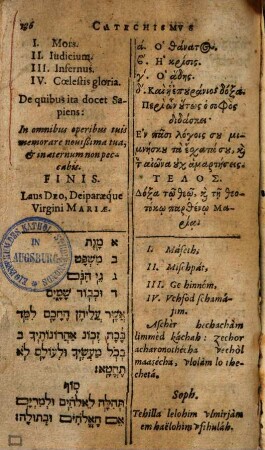 CATECHISMVS
I. Mors.
II. Iudicium.
III. Infernus.
IV. Cœlestis gloria.
De quibus ita docet Sa-
piens:
In omnibus operibus tuis
memorare novissima tua,
& in æternum non pec-
cabis.
FINIS.
Laus DEO, Deiparæque
Virgini MARIÆ.
α. Ὁ θάνατος.
β. Ἡ κρίσις.
γ. Ὁ ᾅδης.
δ. Καὶ ἡ ἐπουράνιος δόξα.
Περὶ ὧν οὕτως ὁ σοφὸς
διδάσκει
Ἐν πᾶσι λόγοις σου μι-
μνήσκου τὰ ἔσχατά σου, κ̀ εἰς
τ̀ αἰῶνα οὐχ ἁμαρτήσεις.
ΤΕΛΟΣ.
Δόξα τῷ θεῷ, κ̀ τῇ θεο-
τόκῳ παρθένῳ Μα-
ρίᾳ.
IN
AUGSBURG
א מות
ב משפט
ג גי הנם
ד וכבוד שמים
אשר עליהן החכם למד
ככה, זכור אחרונותיך ב
בכל מעשך ולעולם לא
תחטא:
סוף
תהלה לאלהים ולמרים
אם האלהים ובתולה:
I. Máveth,
II. Mischpát,
III. Ge hinném,
IV. Vchfod schamá-
jim.
Aschér hechachám
limméd káchah: zechor
acharonothécha vechól
maasécha, vlolám lo the-
chetá.
Soph.
Tehilla lelohim vlmirjám
em haëlohim vsthuláh.